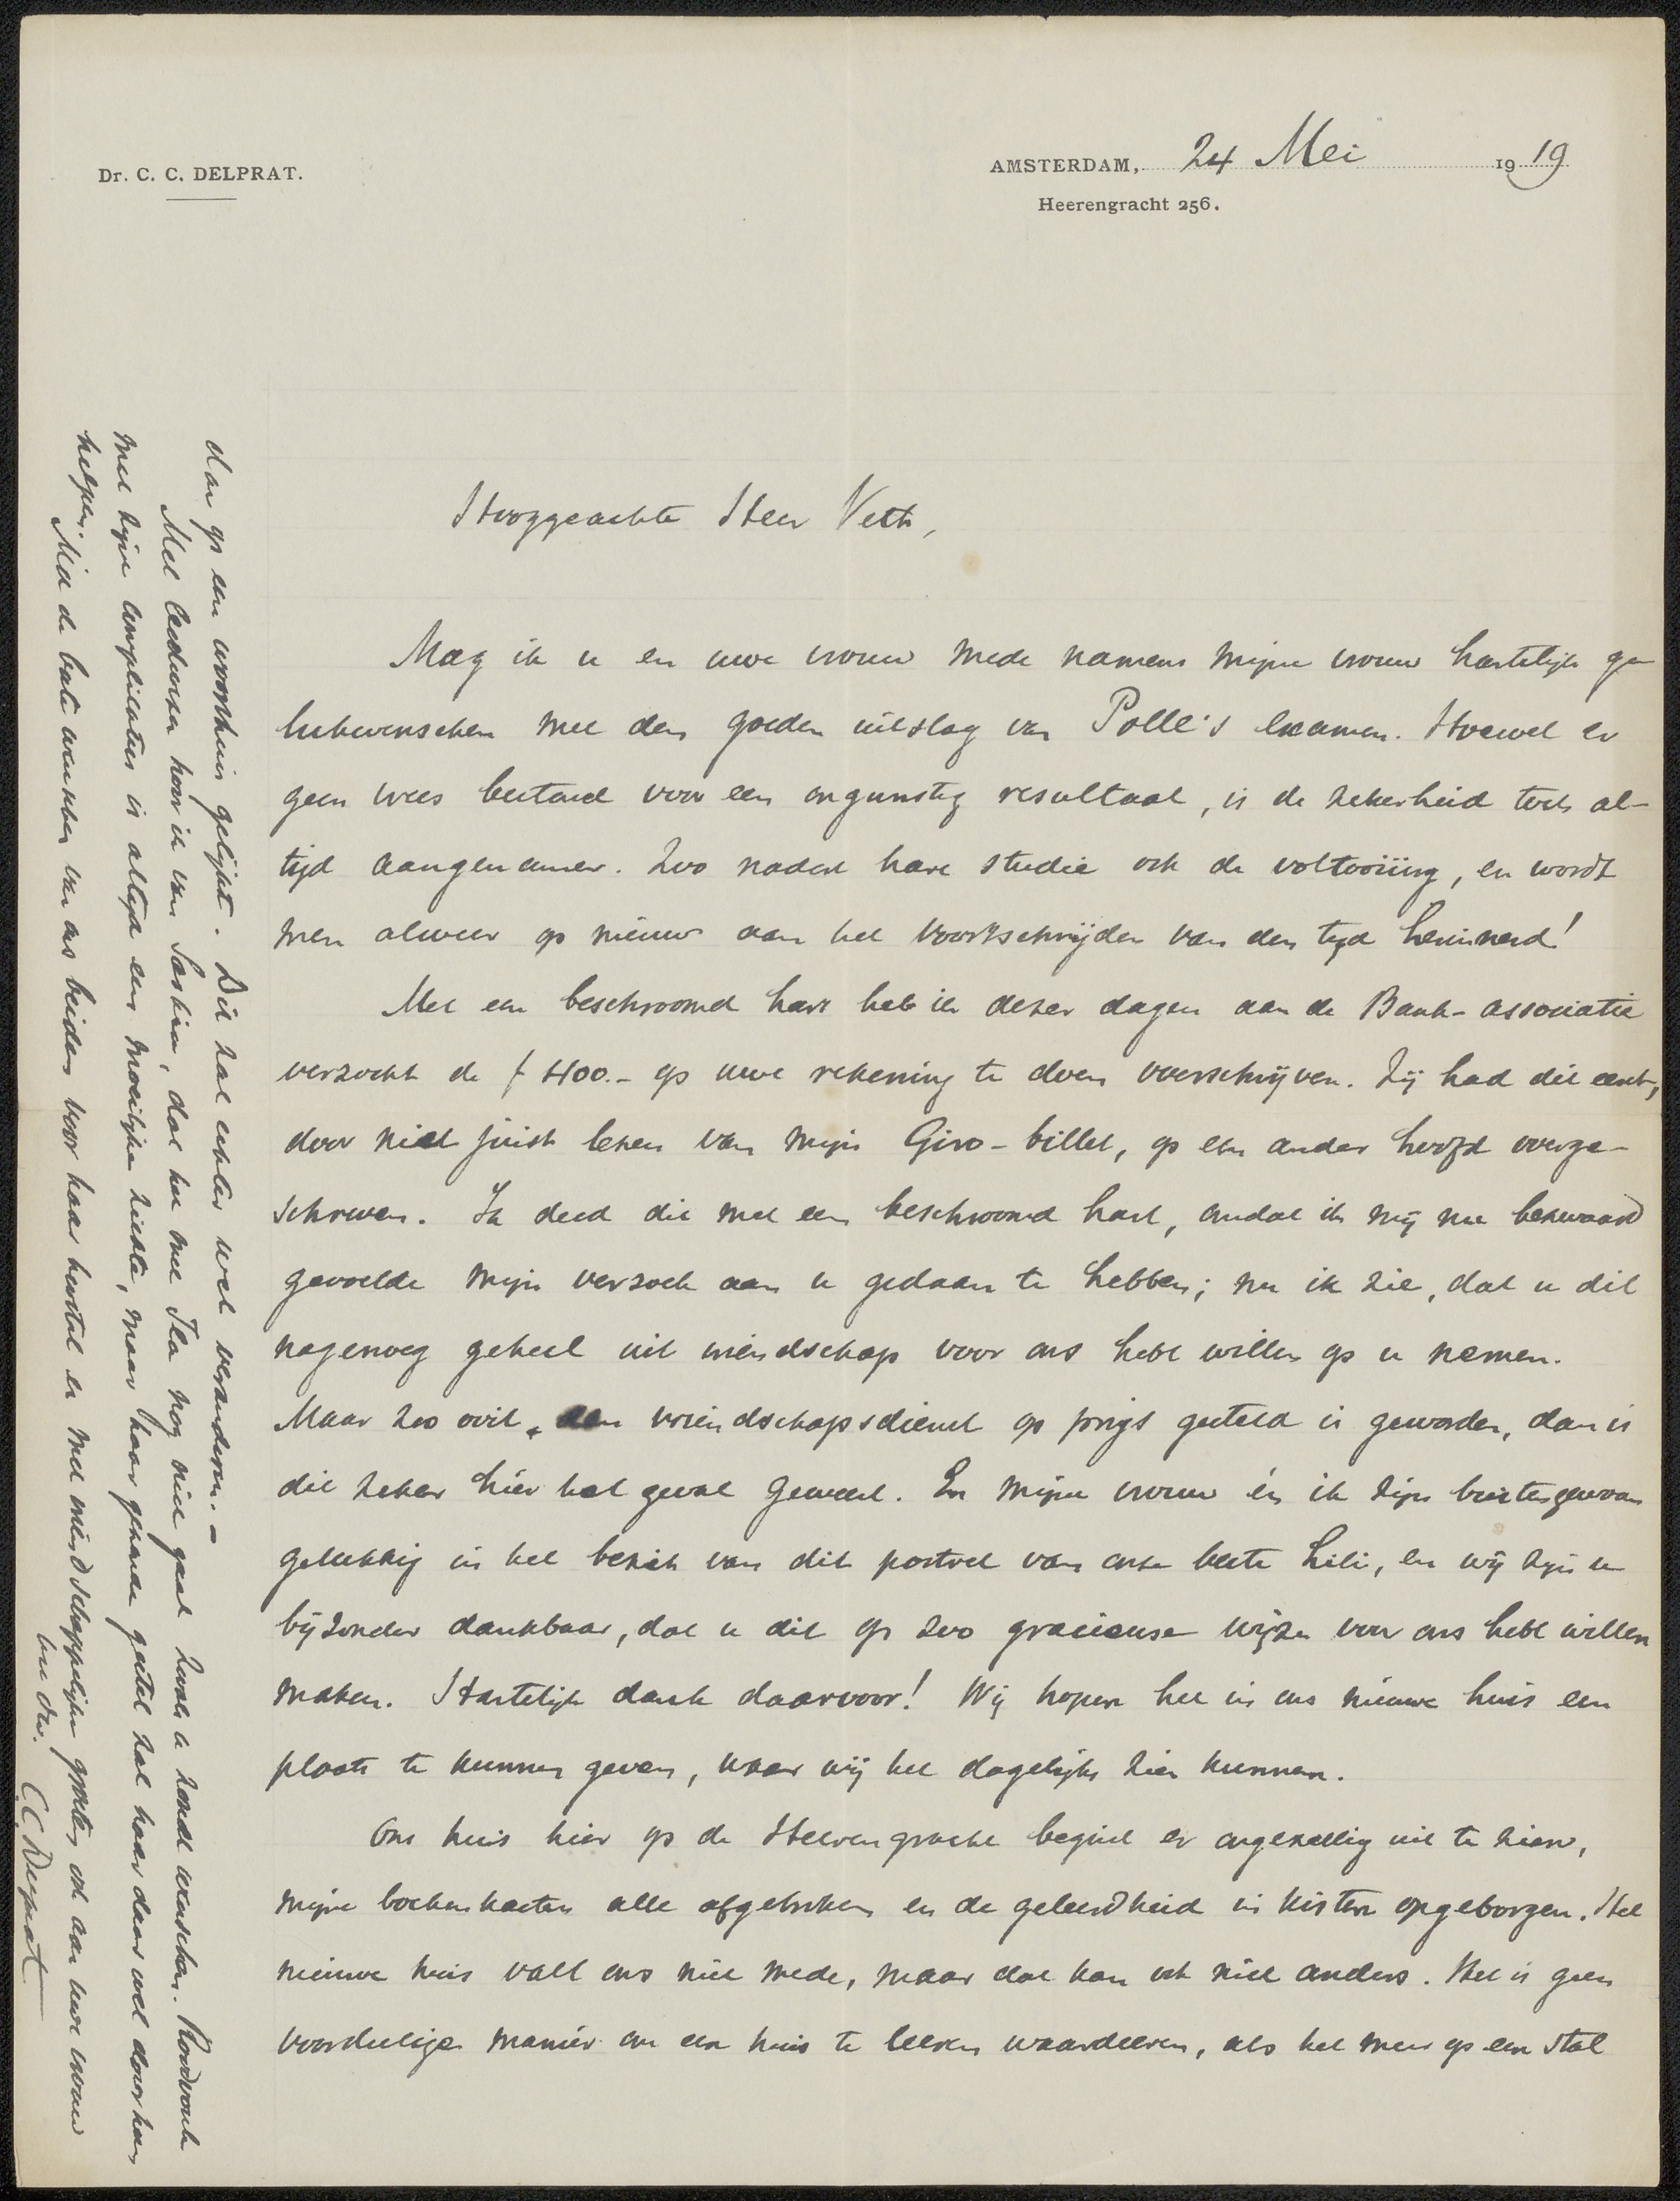 Dr. C. C. DELPRAT.
AMSTERDAM, 24 Mei 1919
Heerengracht 256.
Hooggeachte Heer Veth,
Mag ik u en uwe vrouw mede namens mijne vrouw hartelijk ge
lukwenschen met den goeden uitslag van Polle's examen. Hoewel er
geen vrees bestond voor een ongunstig resultaat, is de zekerheid toch al-
tijd aangenamer. Zoo nadert hare studie ook de voltooiing, en wordt
men alweer op nieuw aan het voortschrijden van den tijd herinnerd!
Met een beschroomd hart heb ik dezer dagen aan de Bank-associatie
verzocht de f 400.- op uwe rekening te doen overschrijven. Zij had dit eerst,
door niet juist lezen van mijn Giro-billet, op een ander hoofd overge-
schreven. Ik deed dit met een beschroomd hart, omdat ik mij nu bezwaard
gevoelde mijn verzoek aan u gedaan te hebben; nu ik zie, dat u dit
nagenoeg geheel uit vriendschap voor ons hebt willen op u nemen.
Maar zoo ooit een vriendschapsdienst op prijs gesteld is geworden, dan is
dit zeker hier het geval geweest. En mijne vrouw én ik zijn buitengewoon
gelukkig in het bezit van dit portret van onze beste Lili, en wij zijn u
bijzonder dankbaar, dat u dit op zoo gracieuse wijze voor ons hebt willen
maken. Hartelijk dank daarvoor! Wij hopen het in ons nieuwe huis een
plaats te kunnen geven, waar wij het dagelijks zien kunnen.
Ons huis hier op de Heerengracht begint er ongezellig uit te zien,
mijne boekenkasten alle afgebroken en de geleerdheid in kisten opgeborgen. Het
nieuwe huis valt ons niet mede, maar dat kan ook niet anders. Het is geen
voordeelige manier om een huis te leeren waardeeren, als het meer op een stal
dan op een woonhuis gelijkt. Dit zal echter wel veranderen.-
Met leedwezen hoor ik van Saskia, dat het met Ila nog niet gaat zooals u zoudt wenschen. Roodvonk
met zijne complicaties is altijd een moeilijke ziekte, maar haar gezonde gestel zal haar daar wel door heen
helpen. Met de beste wenschen van ons beiden voor haar herstel en met vriendschappelijke groeten ook aan uwe vrouw
uw dw. C.C. Delprat